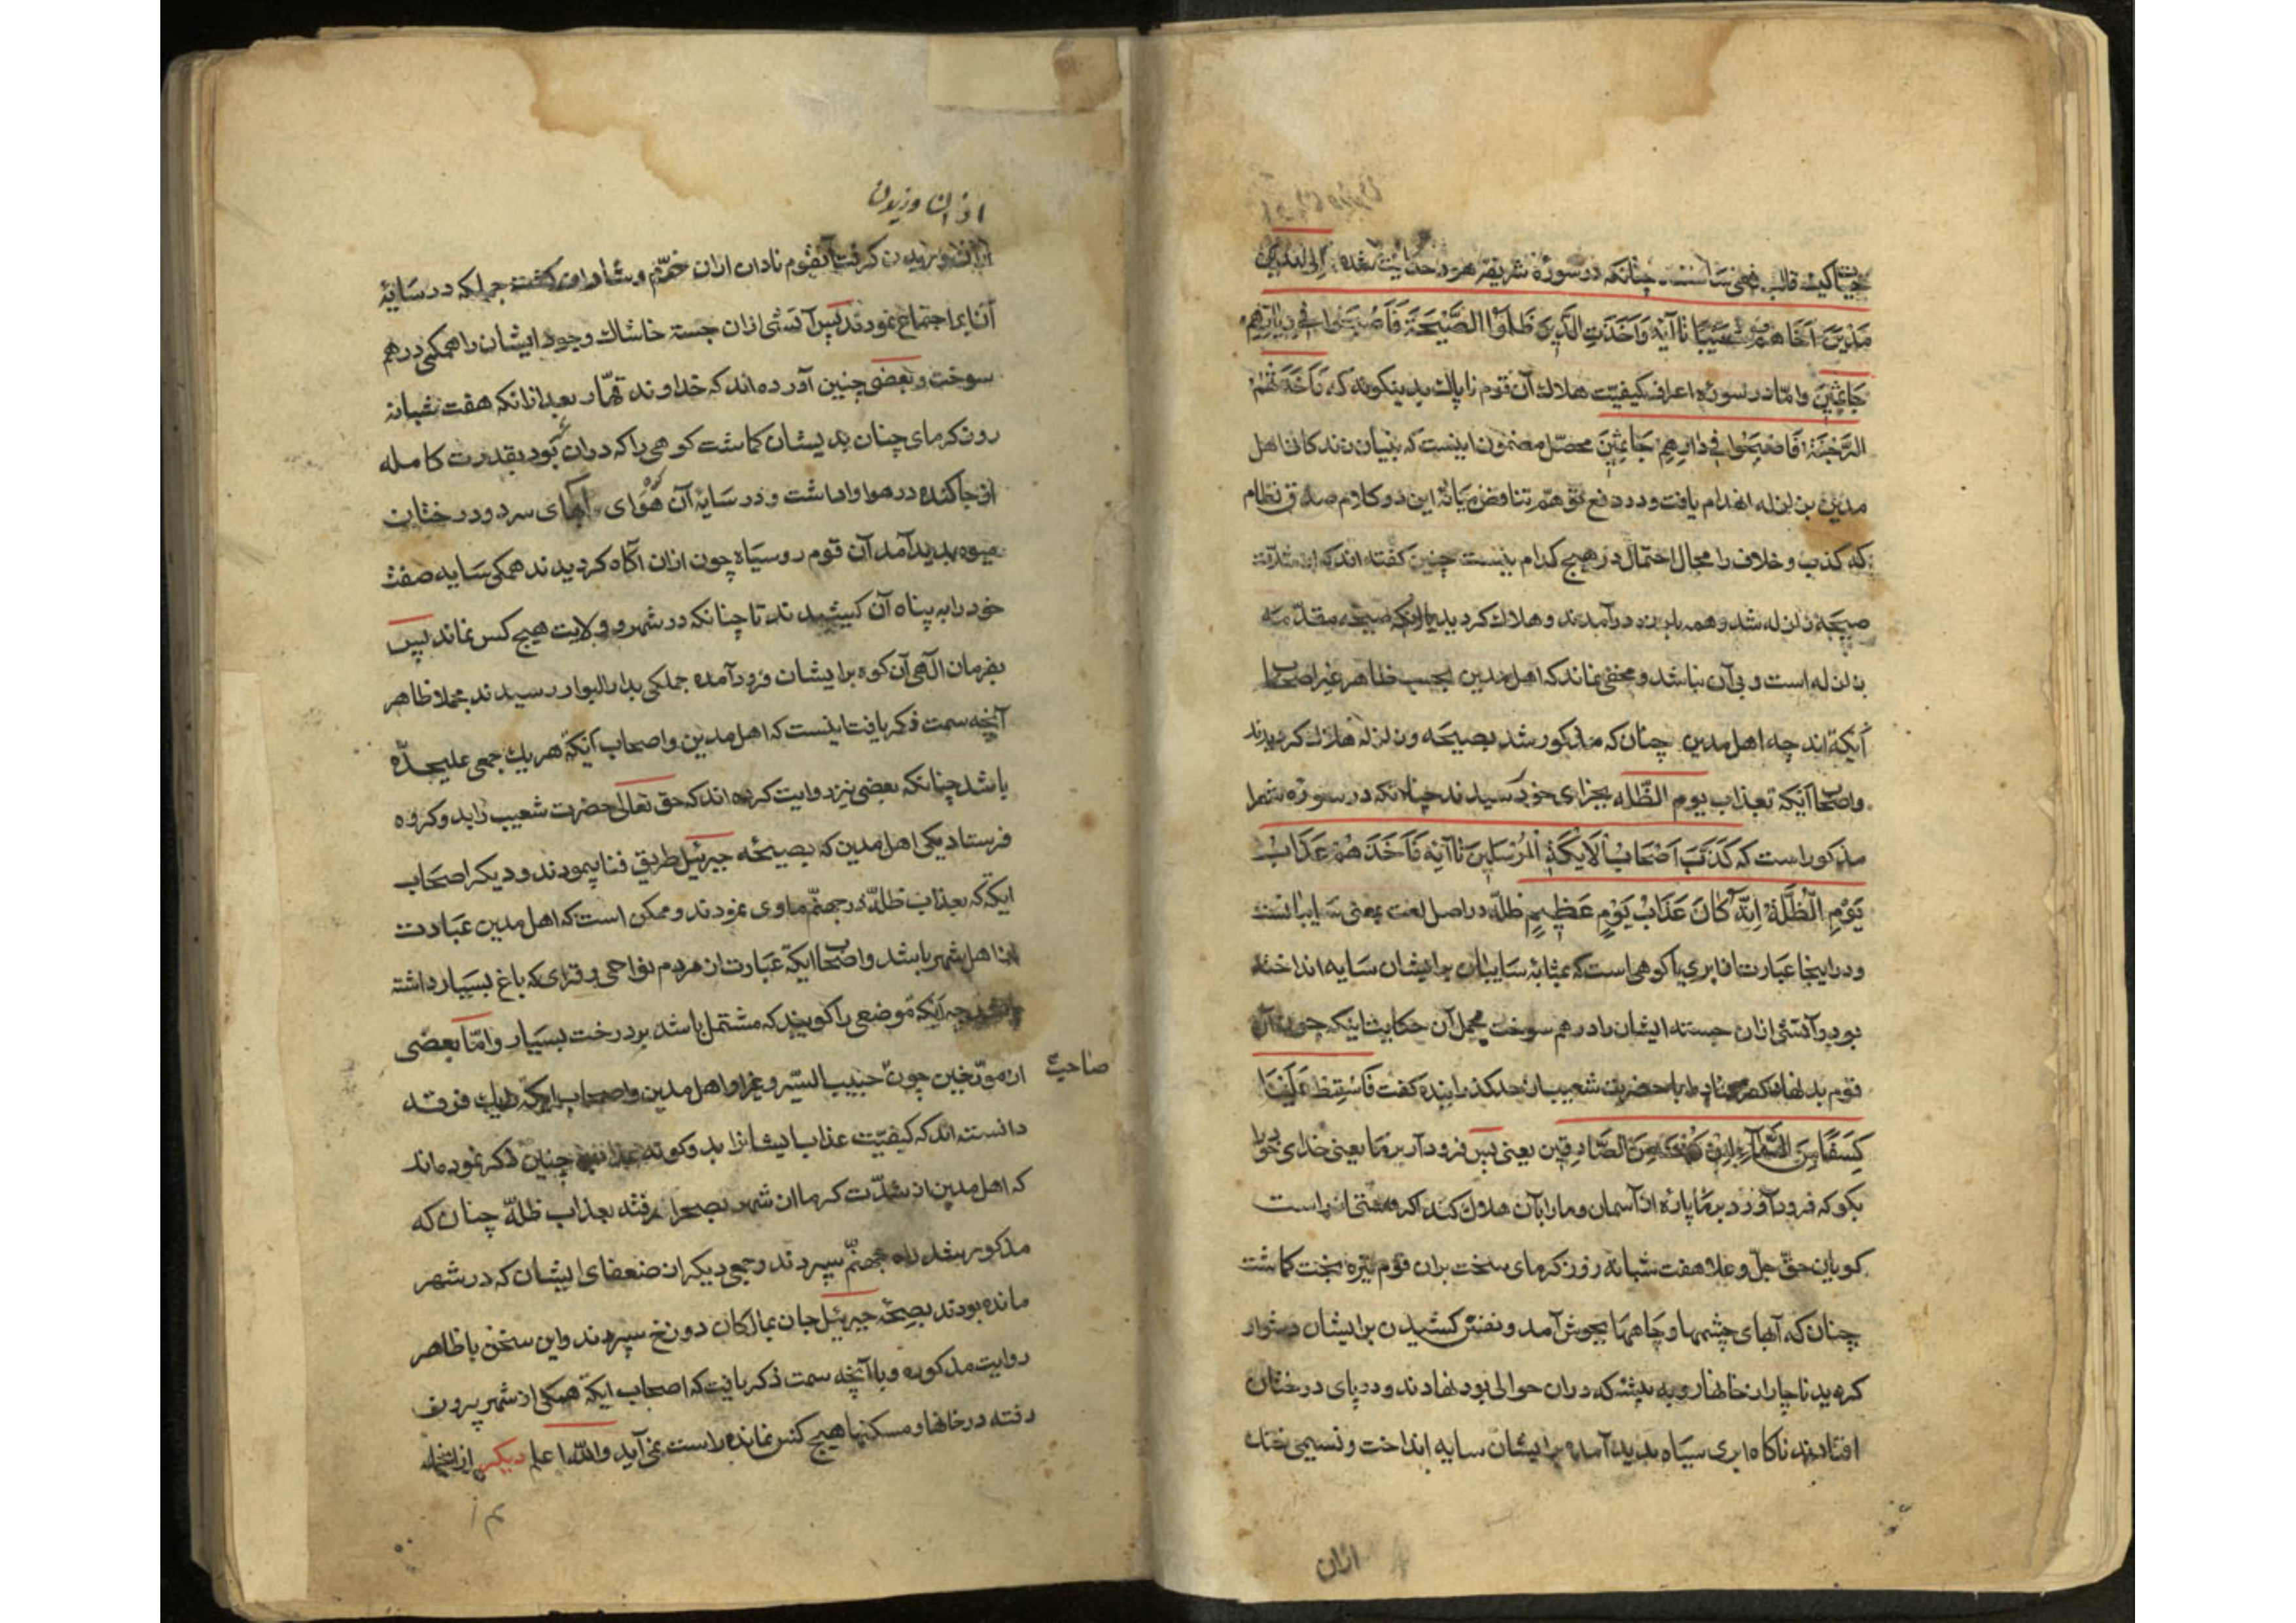 چنانکه در سورهٔ شریفه هود حکایت شده وَاِلی
مَدْیَنَ اَخَاهُمْ شُعَیْبًا تا آیه وَاَخَذَتِ الَّذِینَ ظَلَمُوا الصَّیْحَةُ فَاَصْبَحُوا فِی دِیَارِهِمْ
جَاثِمِینَ وامّا در سورهٔ اعراف کیفیّت هلاك آن قوم ناپاك بدینکونه که فَاَخَذَتْهُمُ
الرَّجْفَةُ فَاَصْبَحُوا فِی دَارِهِمْ جَاثِمِینَ محصّل مضمون اینست که بنیان زندکانی اهل
مدین بزلزله انهدام یافت و در دفع توهّم تناقض میانهٔ این دو کلام صدق نظام
که کذب و خلاف را مجال احتمال در هیچ کدام نیست چنین کفته اند که از شدّت
صیحه زلزله شد و همه بلرزه درآمدند و هلاك کردیدند یا آنکه صیحه مقدّمهٔ
زلزله است و بی آن نباشد و مخفی نماند که اهل مدین بحسب ظاهر غیر اصحاب
اَیکه اند چه اهل مدین چنان که مذکور شد بصیحه و زلزله هلاك کردیدند
واصحاب اَیکه بعذاب یوم الظّله بجزای خود رسیدند چنانکه در سوره شعرا
مذکور است که کَذَّبَ اَصْحَابُ الْاَیْکَةِ الْمُرْسَلِینَ تا آیه فَاَخَذَهُمْ عَذَابُ
یَوْمِ الظُّلَّةِ اِنَّهُ کَانَ عَذَابَ یَوْمٍ عَظِیمٍ ظلّه در اصل لغت بمعنی سایبانست
و در اینجا عبارت از ابری یا کوهی است که بمثابهٔ سایبان بر ایشان سایه انداخته
بود و آتشی ازان جسته ایشان را درهم سوخت مجمل آن حکایت اینکه چون آن
قوم بد نهاد با حضرت شعیب از حد کذرانیده کفت فَاَسْقِطْ عَلَیْنَا
کِسَفًا مِنَ السَّمَآءِ اِنْ کُنْتَ مِنَ الصَّادِقِینَ یعنی پس فرود آر بر ما یعنی خدای خود را
بکو که فرود آورد بر ما پارهٔ از آسمان و ما را بآن هلاك کند اکر راست
کویان حقّ جلّ و علا هفت شبانه روز کرمای سخت بران قوم تیره بخت کماشت
چنان که آبهای چشمها و چاهها بجوش آمد و نفس کشیدن بر ایشان دشوار
کردید ناچار از خانها رو به بیشهٔ که دران حوالی بود نهادند و در پای درختان
افتادند ناکاه ابری سیاه پدید آمده بر ایشان سایه انداخت و نسیمی خنك
ازان
ازان وزیدن
ازان وزیدن کرفت آنقوم نادان ازان خرّم و شادان کشته جملکه در سایهٔ
آن ابر اجتماع نمودند پس آتشی ازان جسته خاشاك وجود ایشان را همکی درهم
سوخت و بعضی چنین آورده اند که خداوند قهّار بعد ازانکه هفت شبانه
روز کرمای چنان بدیشان کماشت کوهی را که دران بود بقدرت کامله
از جا کنده در هوا واداشت و در سایهٔ آن کوه هوای آبهای سرد و درختان
میوه پدید آمد آن قوم روسیاه چون ازان آکاه کردیدند همکی سایه صفت
خود را به پناه آن کشیدند تا چنانکه در شهر و ولایت هیچ کس نماند پس
بفرمان الٓهی آن کوه بر ایشان فرود آمده جملکی بدار البوار رسیدند مجملا ظاهر
آنچه سمت ذکر یافت اینست که اهل مدین واصحاب اَیکه هر یك جمعی علیحدّه
باشد چنانکه بعضی نیز روایت کرده اند که حق تعالی حضرت شعیب را بدو کروه
فرستاد یکی اهل مدین که بصیحهٔ جبرئیل طریق فنا پیمودند و دیکر اصحاب
ایکه که بعذاب ظلّه در جهنّم ماوی نمودند و ممکن است که اهل مدین عبارت
از اهل شهر باشد واصحاب ایکه عبارت از مردم نواحی و قرای که باغ بسیار داشته
باشد چه اَیکه موضعی را کویند که مشتمل باشد بر درخت بسیار وامّا بعضی
از مورّخین چون حبیب السّیر و غیر او اهل مدین واصحاب ایکه را یك فرقه
صاحب
دانسته اند که کیفیّت عذاب ایشانرا بدو کونه چنین ذکر نموده اند
که اهل مدین از شدّت کرما از شهر بصحرا رفته بعذاب ظلّه چنان که
مذکور شد راه جهنّم سپردند و جمعی دیکر از ضعفای ایشان که در شهر
مانده بودند بصیحهٔ جبرئیل جان بمالکان دوزخ سپردند واین سخن با ظاهر
روایت مذکوره و با آنچه سمت ذکر یافت که اصحاب ایکه همکی از شهر بیرون
رفته در خانها و مسکنها هیچ کس نمانده راست نمی آید واللّه اعلم دیکر ازانجمله